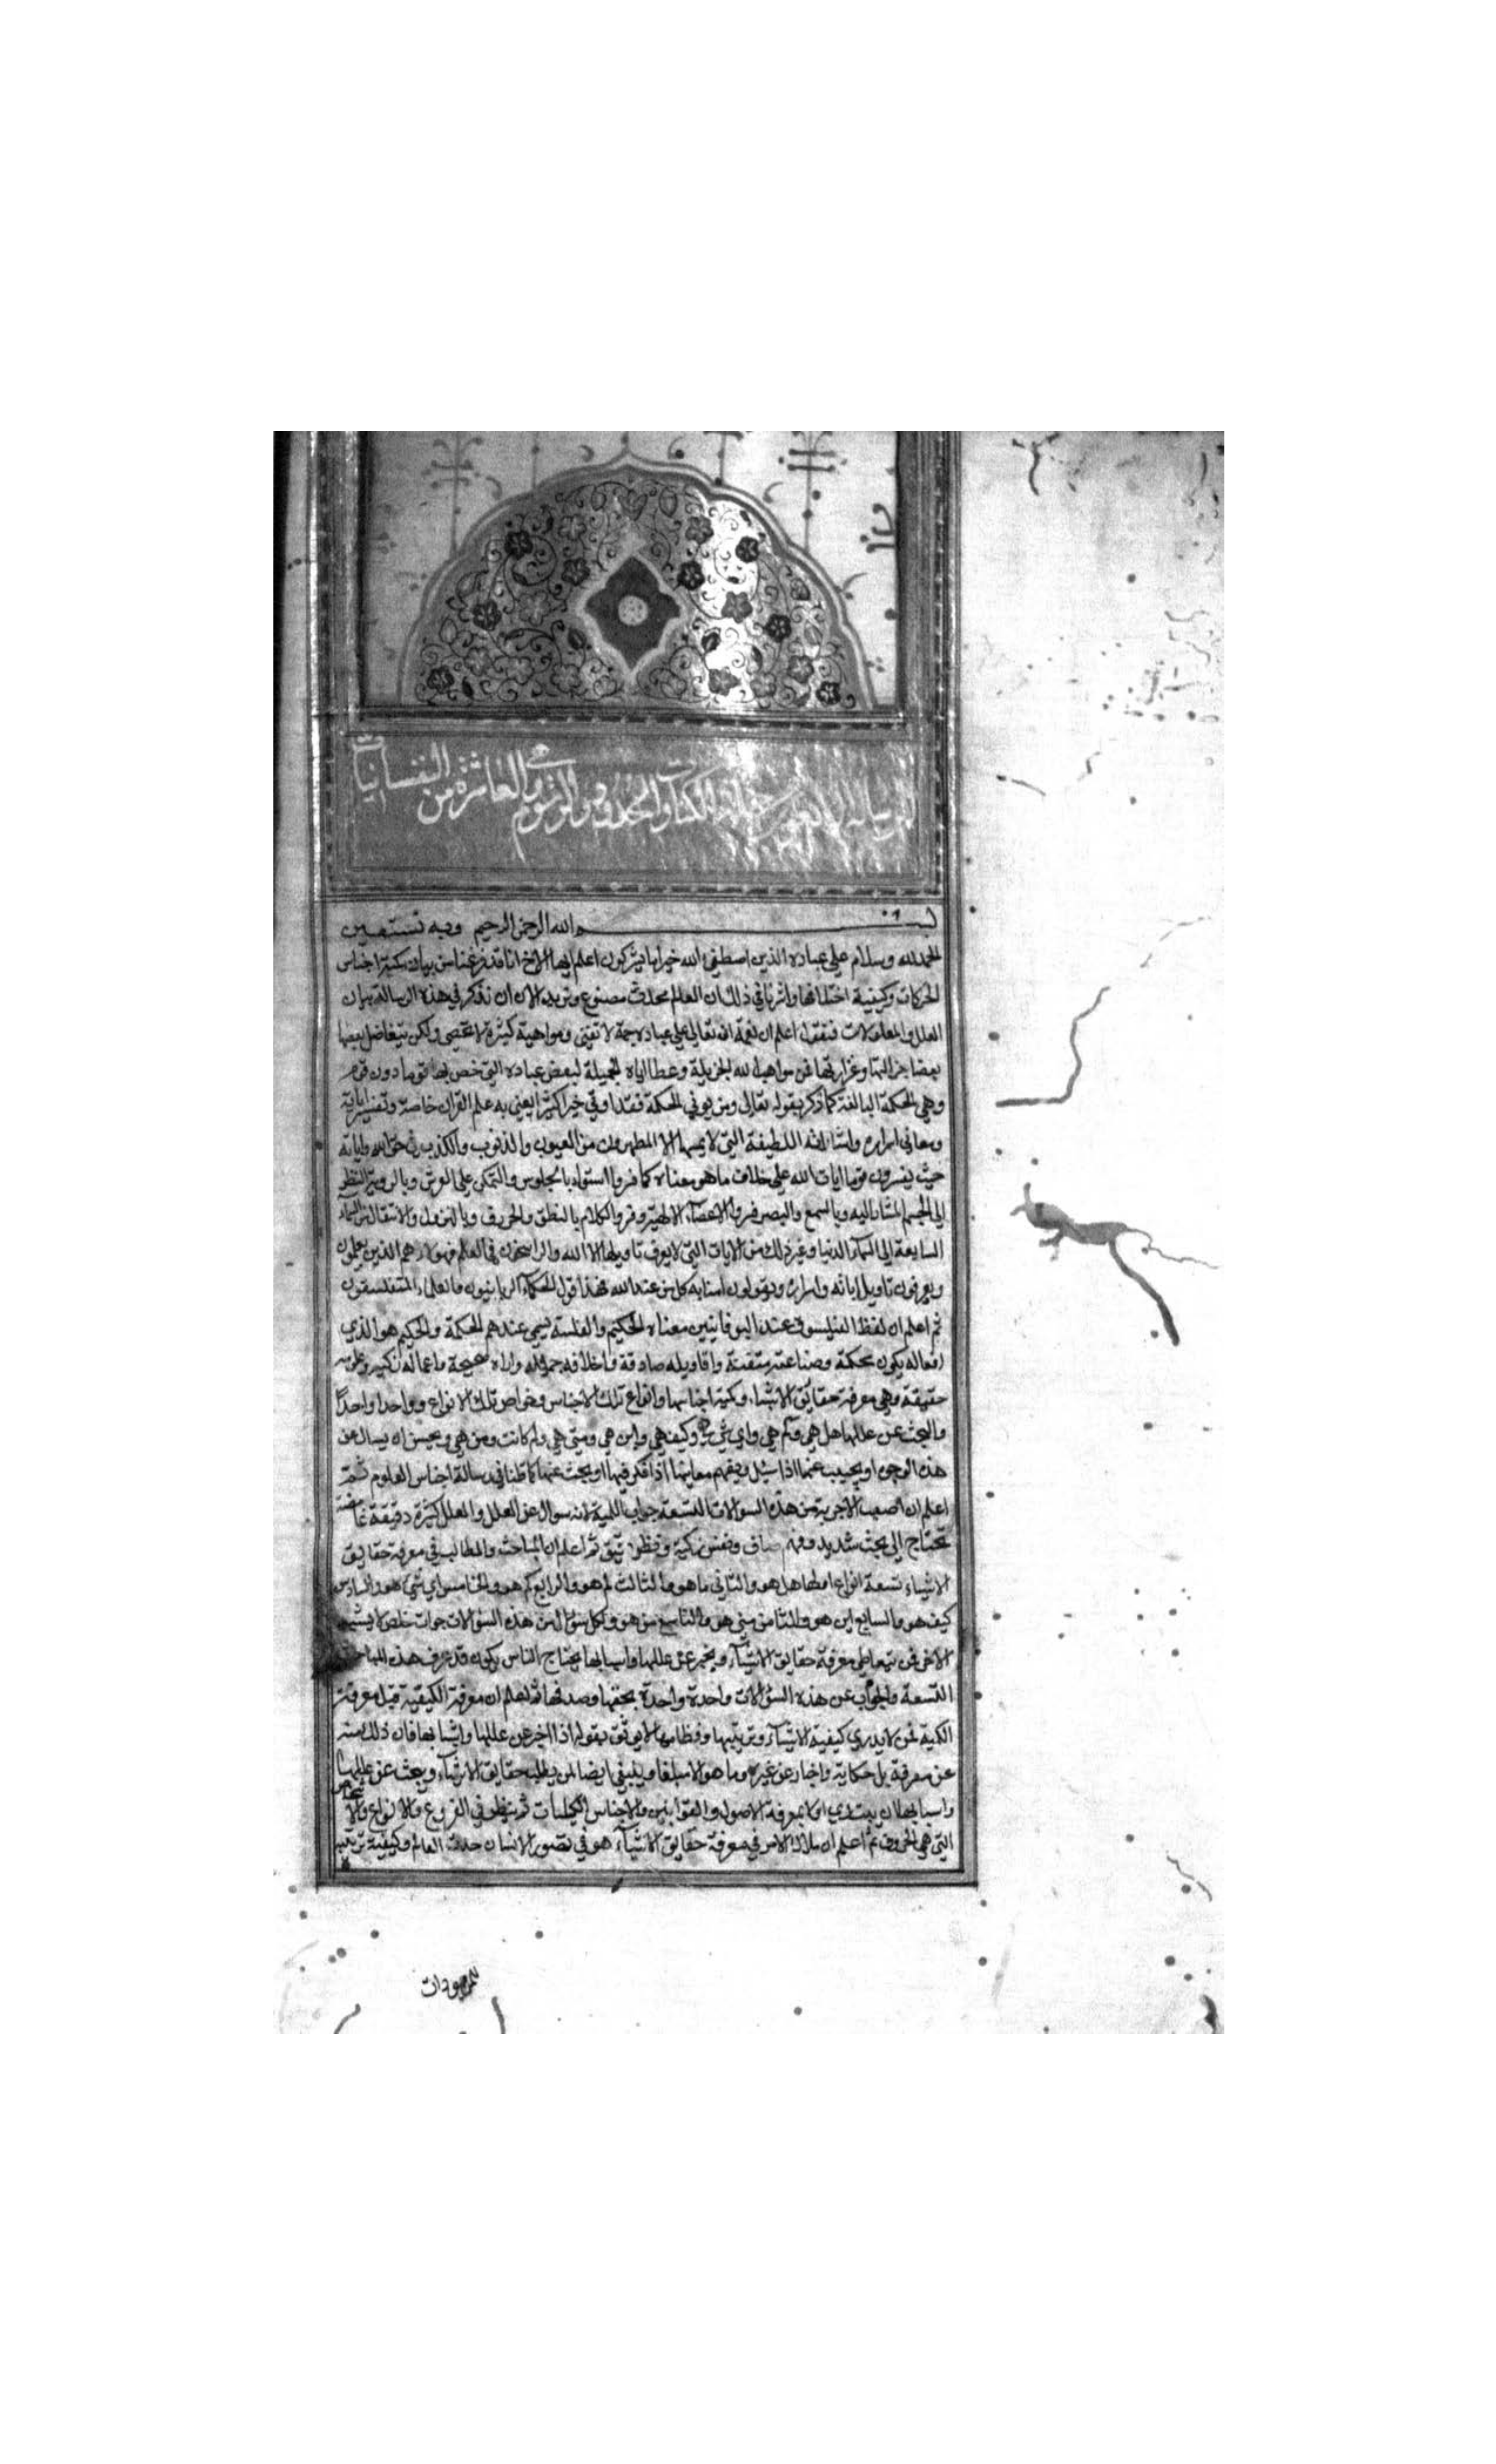 الرسالة من الكتاب الحدود والرسوم وهي العاشرة من النفسانيات
بسم الله الرحمن الرحيم وبه نستعين
الحمد لله وسلام علي عباده الذين اصطفي الله خير اما يشركون اعلم ايها الاخ انا قد فرغنا من بيان كمية اجناس
الحركات وكيفية اختلافها واشرنا في ذلك ان العالم محدث مصنوع ونريد الان ان نذكر في هذه الرسالة بيان
العلل والمعلولات فنقول اعلم ان نعمة الله تعالي علي عباده جمة لا تفني ومواهبه كثيرة لا تحصي ولكن يتفاضل بعضها
بعضا جزالتها وغزارتها فمن مواهب الله الجزيلة وعطاياه الجميلة لبعض عباده التي خص بها قوما دون قوم
وهي الحكمة البالغة كما ذكر بقوله تعالي ومن يوتي الحكمة فقد اوتي خيرا كثيرا يعني به علم القران خاصة وتفسير اياته
ومعاني اسراره واشاراته اللطيفة التي لا يمسها الا المطهرون من العيوب والذنوب والكذب في حق الله واياته
حيث يفسرون قوما ايات الله علي خلاف ما هو معناه كما فسروا استواه بالجلوس والتمكن علي العرش وبالروية النظر
الي الجسم المشار اليه وبالسمع والبصر فسروا الاعضآء الالهية وفسروا الكلام بالنطق والحروف وبالنزول والانتقال من السمآء
السابعة الي السمآء الدنيا وغير ذلك من الايات التي لا يعرف تاويلها الا الله والراسخون في العلم فهولاء هم الذين يعلمون
ويعرفون تاويل اياته واسراره ويقولون امنا به كل من عند الله فهذا قول الحكمآء الربانيون والعلماء المتفلسفون
ثم اعلم ان لفظ الفيلسوف عند اليونانيين معناه الحكيم والفلسفة تسمي عندهم الحكمة والحكيم هو الذي
افعاله يكون محكمة وصناعته متقنة واقاويله صادقة واخلاقه جميلة واراه صحيحة واعماله زكية وعلومه
حقيقة وهي معرفة حقايق الاشياء وكمية اجناسها وانواع تلك الاجناس وخواص تلك الانواع وواحدا واحدا
والبحث عن عللها هل هي وكم هي واي شي هي وكيف هي واين هي ومتي هي ولم كانت ومن هي ويحسن ان يسال عن
هذه الوجوه ويجيب عنها اذا سئل ويفهم معانيها اذا فكر فيها او بحث عنها كما قلنا في رسالة اجناس العلوم ثم
اعلم ان اصعب الاجوبة من هذه السوالات التسعة جواب اللمية لانه سوال عن العلل والعلل كثيرة دقيقة غامضة
تحتاج الي بحث شديد وفهم صاف ونفس زكية ونظر دقيق ثم اعلم ان المباحث والمطالب في معرفة حقايق
الاشياء تسعة انواع اولها هل هو والثاني ما هو والثالث لم هو والرابع كم هو والخامس اي شي هو والسادس
كيف هو والسابع اين هو والثامن متي هو والتاسع من هو ولكل سؤال من هذه السؤلات جواب خاص لا يشبه
الاخر فمن يتعاطي معرفة حقايق الاشيآء ويخبر عن عللها واسبابها يحتاج الناس يكون قد عرف هذه المباحث
التسعة والجواب عن هذه السؤلات واحدة واحدة بحقها وصدقها ثم اعلم ان معرفة الكيفية قبل معرفة
الكمية فمن لا يدري كيفية الاشيآء وترتيبها ونظامها لا يوثق بقوله اذا اخبر عن عللها واسبابها فان ذلك منه
عن معرفة بل حكاية واخبار عن غيره وما هو الا مبلغا وينبغي ايضا لمن يطلب حقايق الاشيآء ويبحث عن عللها
واسبابها ان يبتدي اولا بمعرفة الاصول والقوانين والاجناس الكليات ثم ينظر في الفروع والانواع والاشخاص
التي هي الحروف ثم اعلم ان ملاك الامر في معرفة حقايق الاشيآء هو في تصور الانسان حدث العالم وكيفية ترتيبه
للموجودات